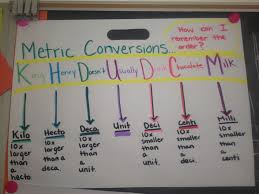 How can I
remember the
order?
Metric Conversions...
King Henry Doesn't Usually Drink Chocolate Milk
Kilo Hecto Deca Unit Deci Centi Milli
10x 10x 10x 10x 10x 10x
larger larger larger smaller smaller smaller
than than than than than than
a a deca. a a a a
hecto. unit. unit. deci. centi